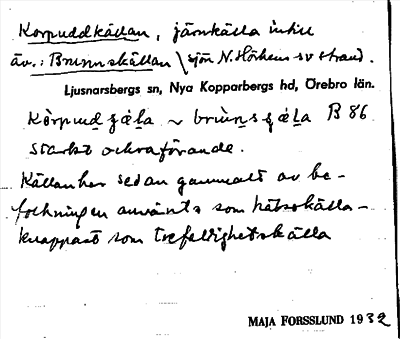 Korpuddkällan, järnkälla intill
äv.: Brunnskällan sjön N. Hörken sv strand.
Ljusnarsbergs sn, Nya Kopparbergs hd, Örebro län.
Kòrpud ʒǽla ~ brùn̥sʒǽla B 86
starkt ockraförande.
Källan har sedan gammalt av be-
folkningen använts som hälsokälla –
knappast som trefaldighetskälla
MAJA FORSSLUND 1932